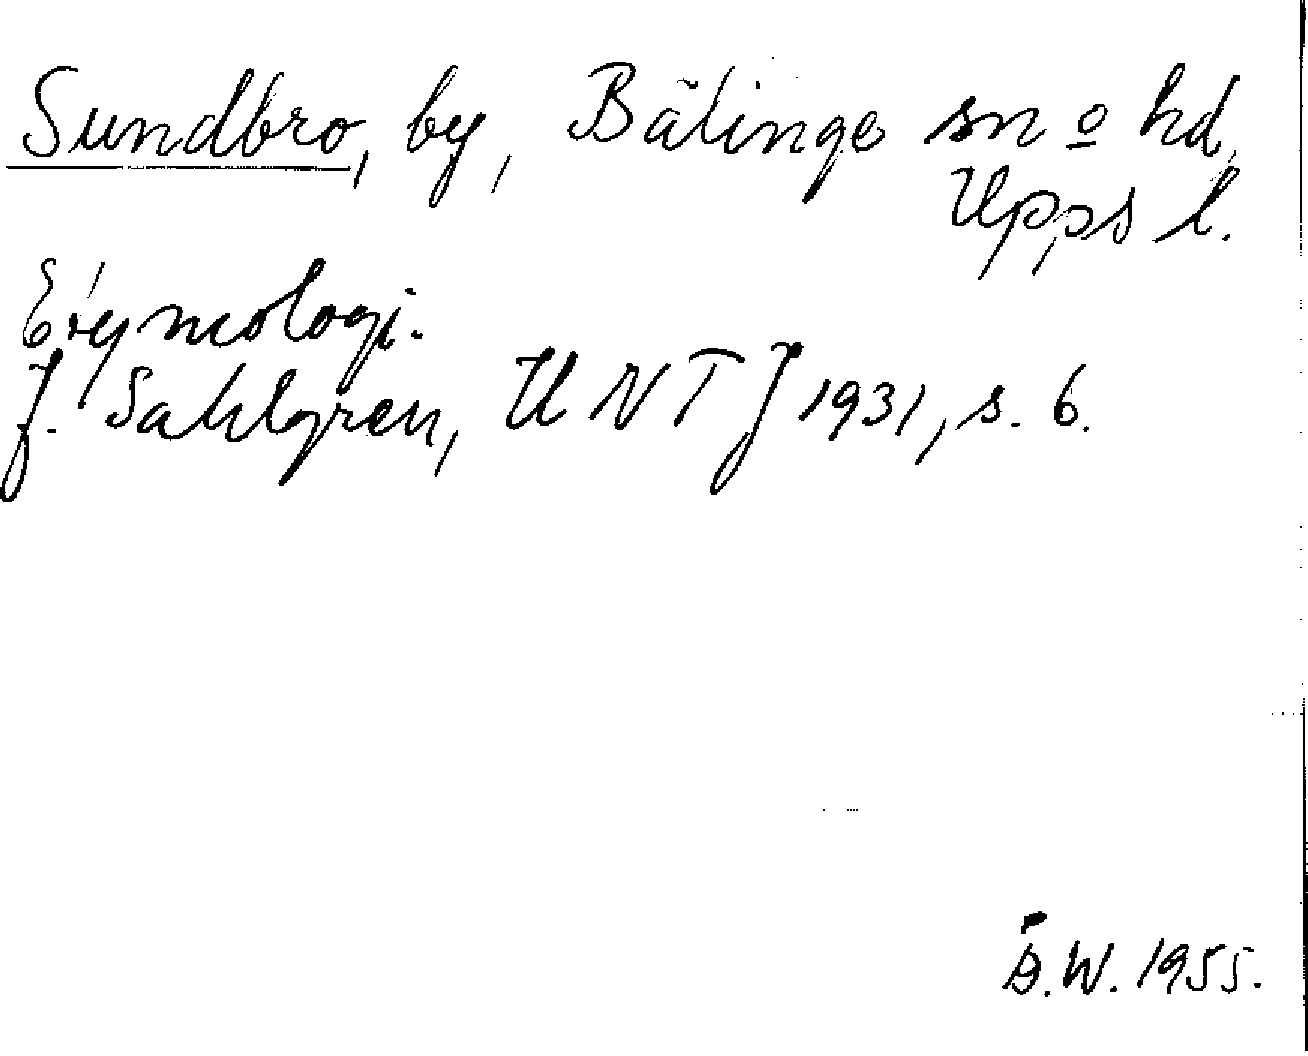 Sundbro, by, Bälinge sn o hd,
Upps l.
Etymologi.
J. Sahlgren, UNTJ 1931, s. 6.
D.W. 1955.